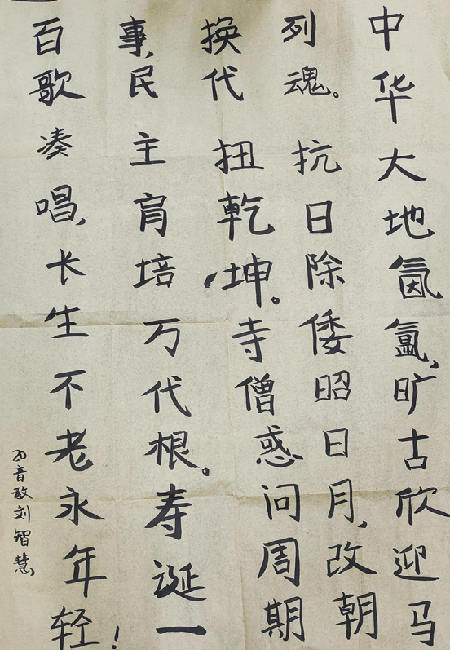 中华大地氤氲,旷古欣迎马
列魂。抗日除倭昭日月,改朝
换代扭乾坤。寺僧惑问周期
事,民主育培万代根。寿诞一
百歌凑唱,长生不老永年轻!
刘智慧